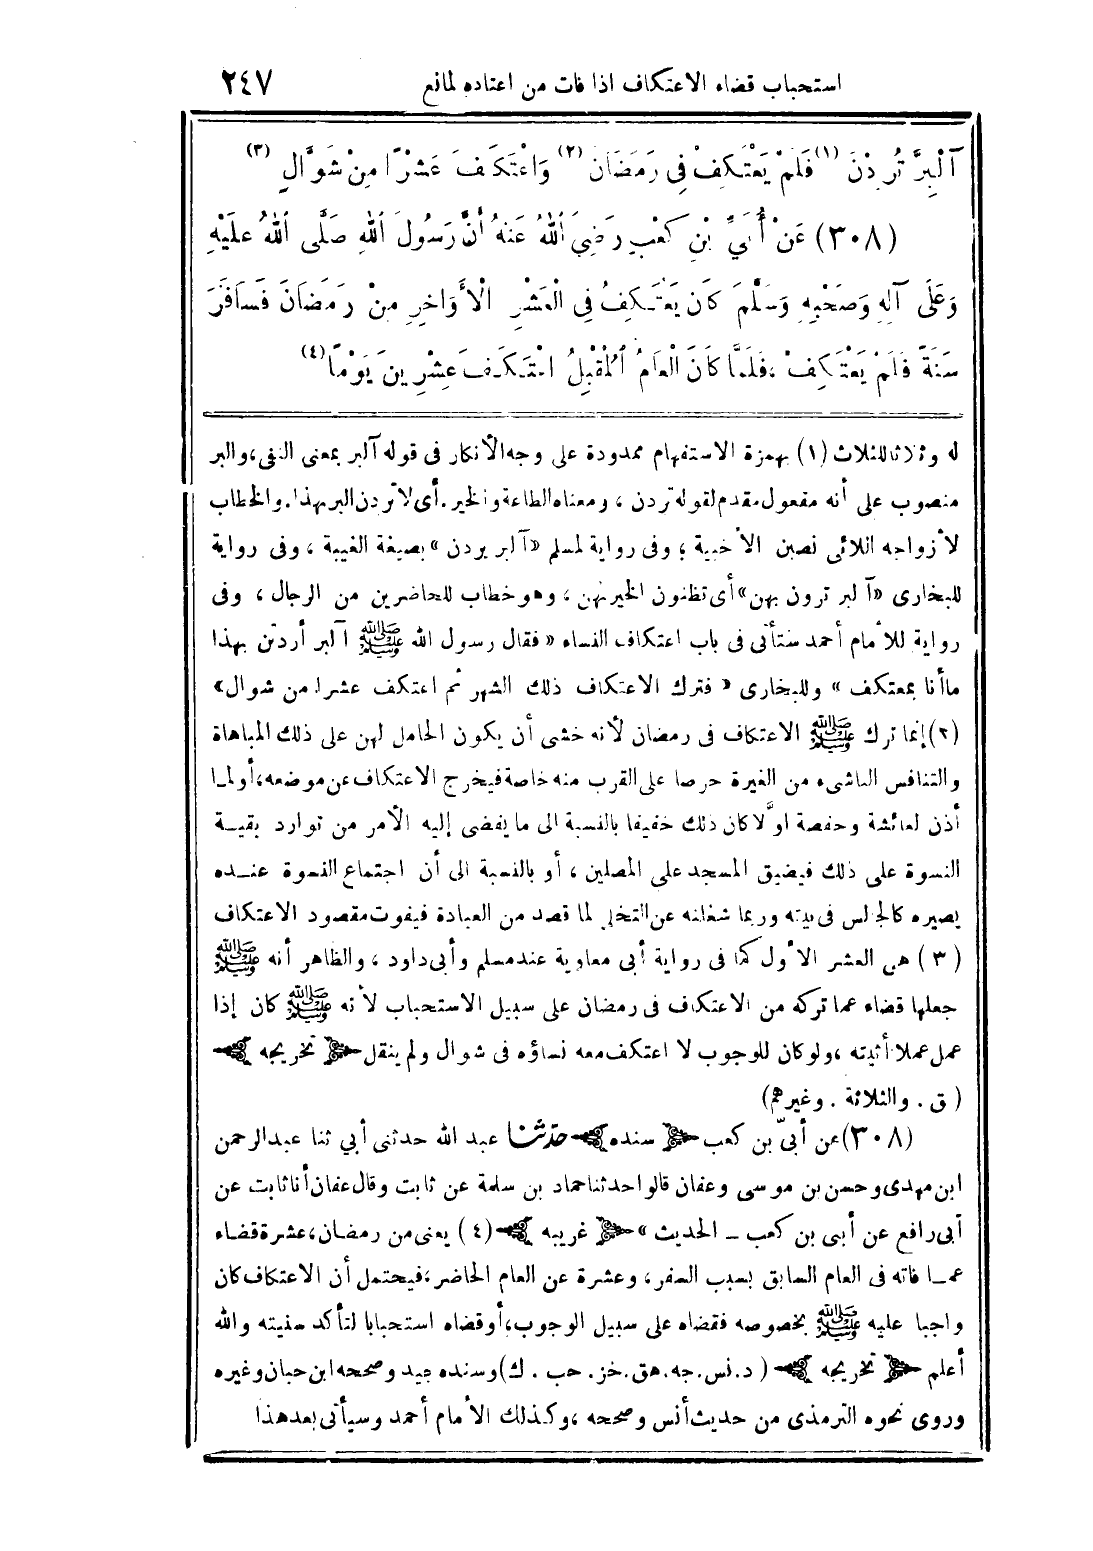 استحباب قضاء الاعتكاف اذا فات من اعتاده لمانع ٢٤٧
آلْبِرَّ تُرِدْنَ (١) فَلَمْ يَعْتَكِفْ فِى رَمَضَانَ (٢) وَاعْتَكَفَ عَشْرًا مِنْ شَوَّالٍ (٣)
(٣٠٨) عَنْ أُبَيِّ بْنِ كَعْبٍ رَضِيَ اللهُ عَنْهُ أَنَّ رَسُولَ اللهِ صَلَّى اللهُ عَلَيْهِ
وَعَلَى آلِهِ وَصَحْبِهِ وَسَلَّمَ كَانَ يَعْتَكِفُ فِى الْعَشْرِ الْأَوَاخِرِ مِنْ رَمَضَانَ فَسَافَرَ
سَنَةً فَلَمْ يَعْتَكِفْ ، فَلَمَّا كَانَ الْعَامُ الْمُقْبِلُ اعْتَكَفَ عِشْرِينَ يَوْمًا (٤)
له وثلاثا للثلاث (١) بهمزة الاستفهام ممدودة على وجه الأنكار فى قوله آلبر بمعنى النفى، والبر
منصوب على أنه مفعول مقدم لقوله تردن ، ومعناه الطاعة والخير. أى لا تردن البر بهذا. والخطاب
لأزواجه اللائى نصبن الأخبية ؛ وفى رواية لمسلم «آلبر يردن» بصيغة الغيبة ، وفى رواية
للبخارى «آلبر ترون بهن» أى تظنون الخير بهن ، وهو خطاب للحاضرين من الرجال ، وفى
رواية للأمام أحمد ستأتى فى باب اعتكاف النساء « فقال رسول الله ﷺ آلبر أردتن بهذا
ماأنا بمعتكف » وللبخارى « فترك الاعتكاف ذلك الشهر ثم اعتكف عشرا من شوال»
(٢) إنما ترك ﷺ الاعتكاف فى رمضان لأنه خشى أن يكون الحامل لهن على ذلك المباهاة
والتنافس الناشىء من الغيرة حرصا على القرب منه خاصة فيخرج الاعتكاف عن موضعه، أو لما
أذن لعائشة وحفصة اولًا كان ذلك خفيفا بالنسبة الى ما يفضى إليه الأمر من توارد بقية
النسوة على ذلك فيضيق المسجد على المصلين ، أو بالنسبة الى أن اجتماع النسوة عنده
يصيره كالجالس فى بيته وربما شغلنه عن التخلى لما قصد من العبادة فيفوت مقصود الاعتكاف
(٣) هى العشر الأول كما فى رواية أبى معاوية عند مسلم وأبى داود ، والظاهر أنه ﷺ
جعلها قضاء عما تركه من الاعتكاف فى رمضان على سبيل الاستحباب لأنه ﷺ كان إذا
عمل عملا أثبته ، ولو كان للوجوب لا اعتكف معه نساؤه فى شوال ولم ينقل ﴿ تخريجه ﴾
( ق . والثلاثة . وغيرهم)
(٣٠٨) عن أبيّ بن كعب ﴿ سنده ﴾ حدّثنا عبد الله حدثنى أبي ثنا عبد الرحمن
ابن مهدى وحسن بن موسى وعفان قالوا حدثنا حماد بن سلمة عن ثابت وقال عفان أنا ثابت عن
أبى رافع عن أبى بن كعب ــ الحديث » ﴿ غريبه ﴾ (٤) يعنى من رمضان، عشرة قضاء
عما فاته فى العام السابق بسبب السفر، وعشرة عن العام الحاضر، فيحتمل أن الاعتكاف كان
واجبا عليه ﷺ بخصوصه فقضاه على سبيل الوجوب، أو قضاه استحبابا لتأكد سنيته والله
أعلم ﴿ تخريجه ﴾ ( د . نس . جه . هق . خز . حب . ك) وسنده جيد وصححه ابن حبان وغيره
وروى نحوه الترمذى من حديث أنس وصححه ، وكذلك الأمام أحمد وسيأتى بعد هذا